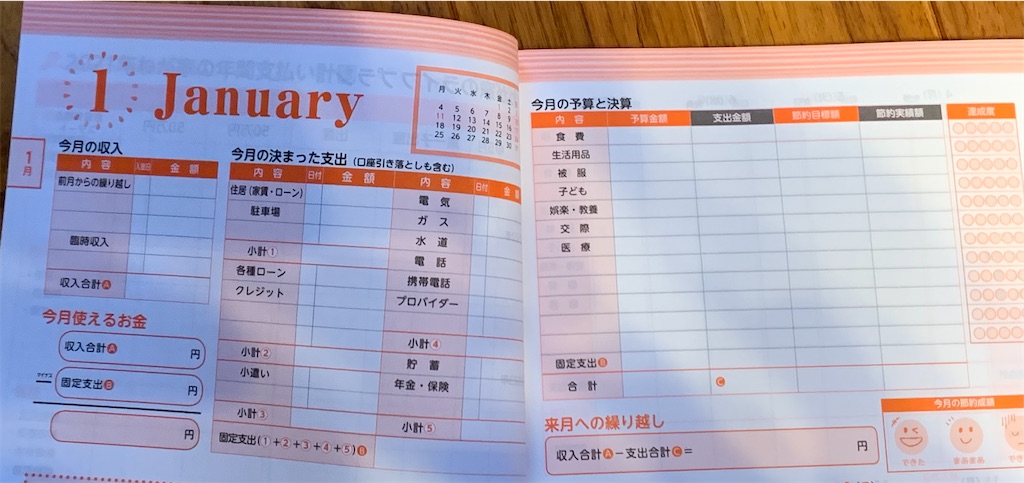 1 January
月 火 水 木 金 土
1 2
4 5 6 7 8 9
11 12 13 14 15 16
18 19 20 21 22 23
25 26 27 28 29 30
1月
今月の収入
内 容 入金日 金 額
前月からの繰り越し
臨時収入
収入合計A
今月使えるお金
収入合計A 円
マイナス
固定支出B 円
円
今月の決まった支出(口座引き落としも含む)
内 容 日付 金 額
住居(家賃・ローン)
駐車場
小計①
各種ローン
クレジット
小計②
小遣い
小計③
固定支出(①+②+③+④+⑤)B
内 容 日付 金 額
電 気
ガ ス
水 道
電 話
携帯電話
プロバイダー
小計④
貯 蓄
年金・保険
小計⑤
今月の予算と決算
内 容 予算金額 支出金額 節約目標額 節約実績額 達成度
食 費
生活用品
被 服
子ども
娯楽・教養
交 際
医 療
固定支出B
合 計 C
来月への繰り越し
収入合計A-支出合計C= 円
今月の節約成績